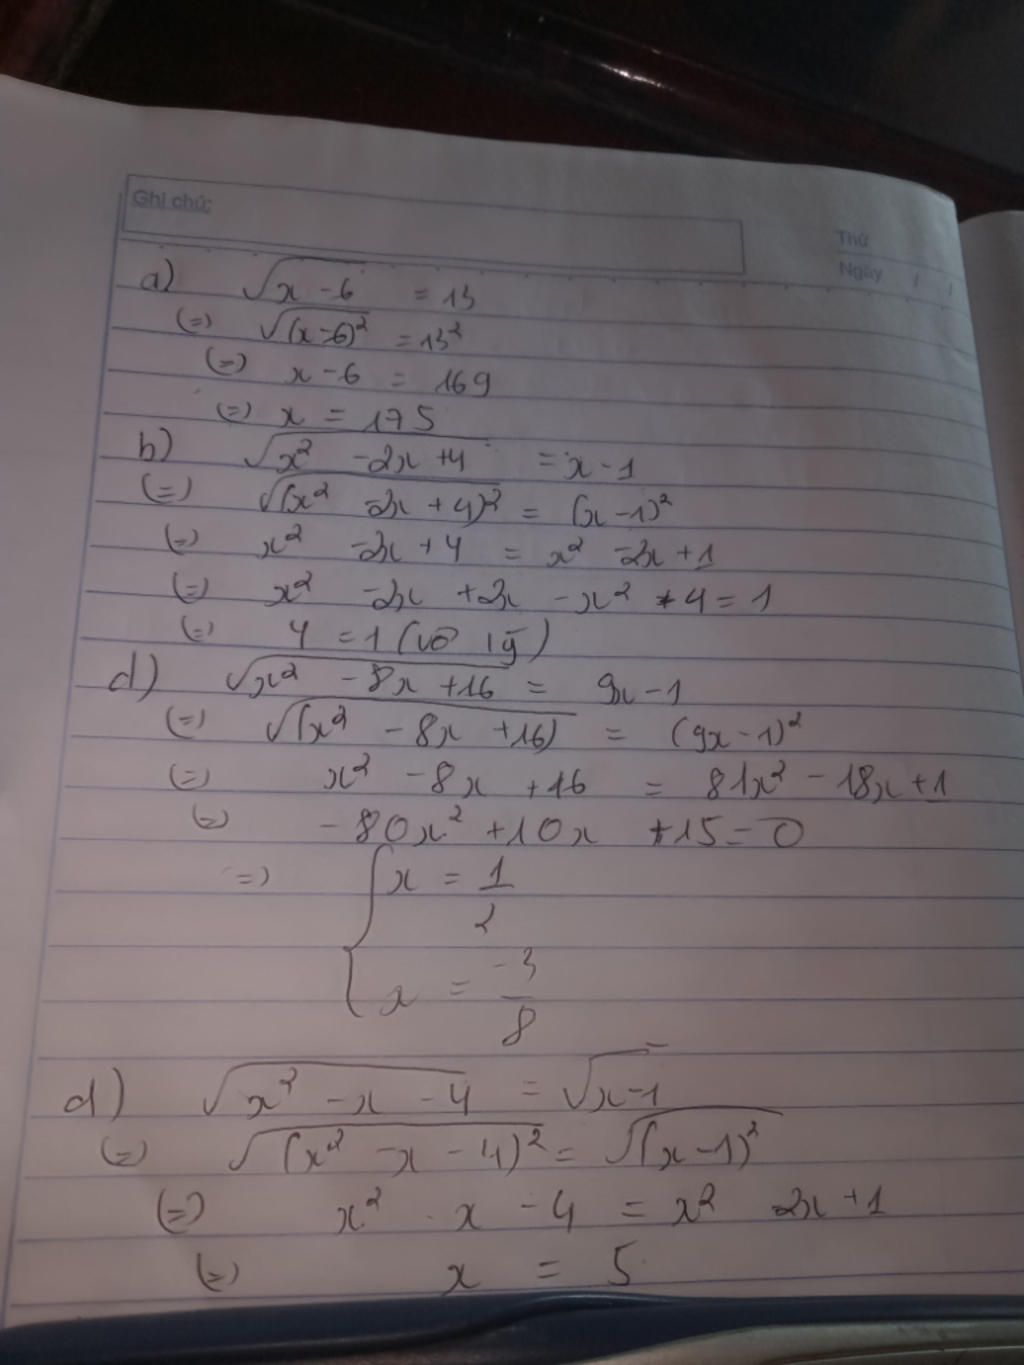 Ghi chú:
Thứ
Ngày / /
a) √(x - 6) = 13
(=) √(x - 6)² = 13²
(=) x - 6 = 169
(=) x = 175
b) √(x² - 2x + 4) = x - 1
(=) √(x² - 2x + 4)² = (x - 1)²
(=) x² - 2x + 4 = x² - 2x + 1
(=) x² - 2x + 2x - x² + 4 = 1
(=) 4 = 1 (vô lý)
d) √(x² - 8x + 16) = 9x - 1
(=) √(x² - 8x + 16) = (9x - 1)²
(=) x² - 8x + 16 = 81x² - 18x + 1
(=) - 80x² + 10x + 15 = 0
=) { x = 1/2
x = -3/8
d) √(x² - x - 4) = √(x - 1)
(=) √(x² - x - 4)² = √(x - 1)²
(=) x² - x - 4 = x² 2x + 1
(=) x = 5